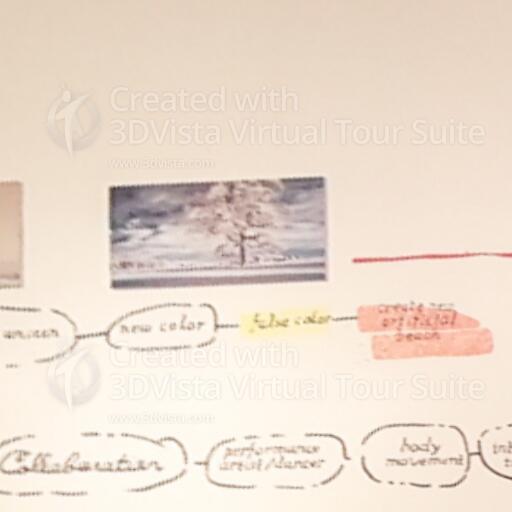 Created with
3DVista Virtual Tour Suite
www.3dvista.com
new color
false color
artificial
beach
Created with
3DVista Virtual Tour Suite
www.3dvista.com
Collaboration
performance
artist/dancer
body
movement